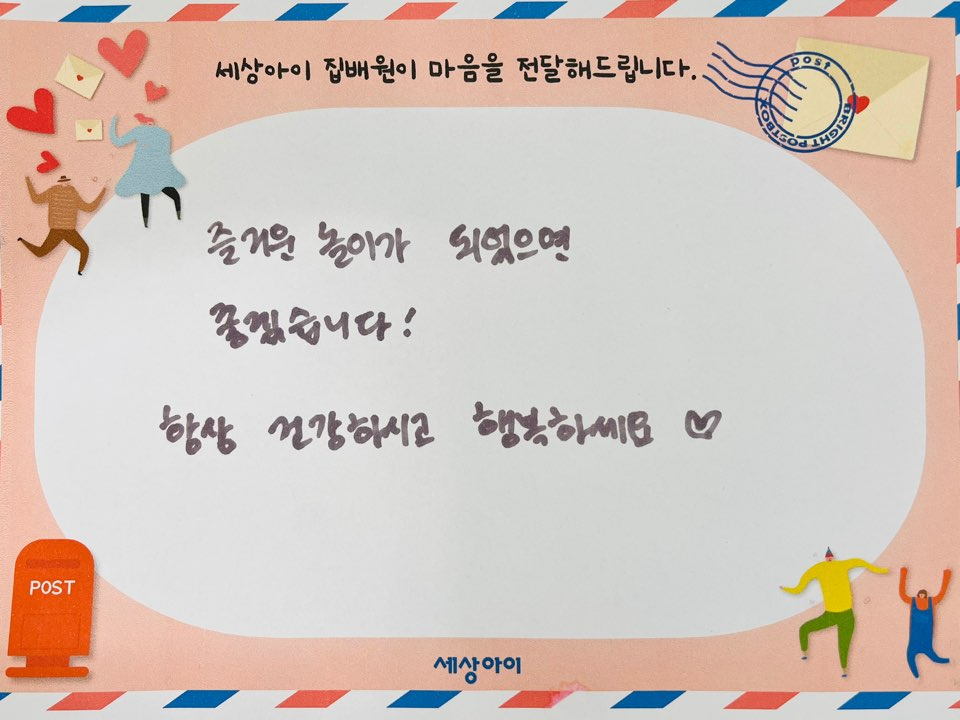 세상아이 집배원이 마음을 전달해드립니다.
post
BRIGHT POSTBOX
즐거운 놀이가 되었으면
좋겠습니다!
항상 건강하시고 행복하세요 ♡
POST
세상아이